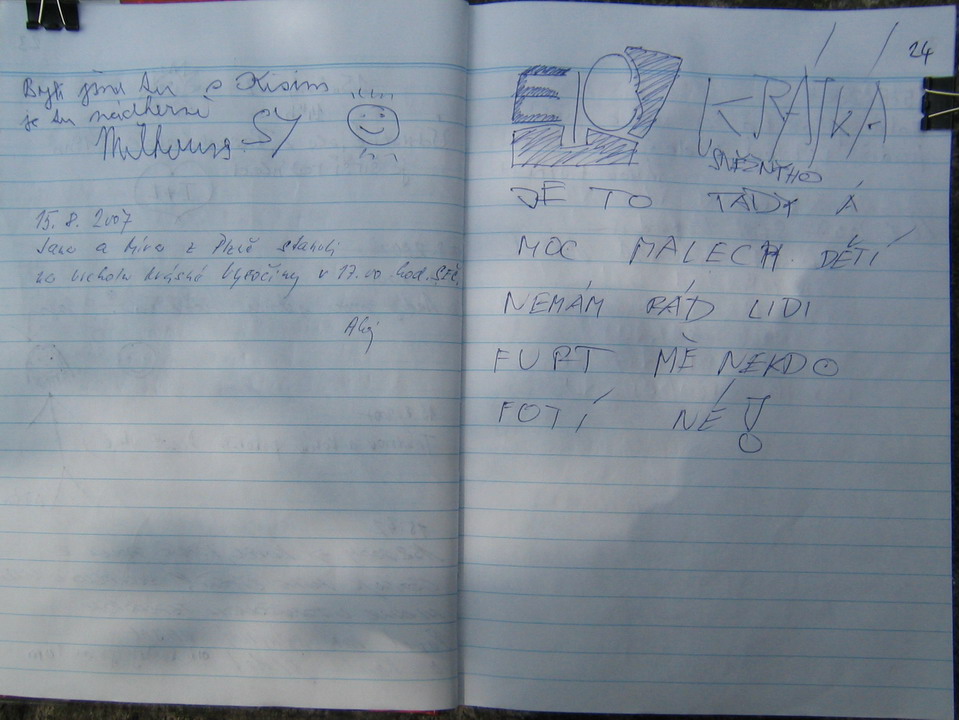 Byli jsme tu s
je tu nádherně
15. 8. 2007
Jana a Míra z Plzně stanuli
na vrcholu krásné Vysočiny v 17.00 hod. SEČ.
Ahoj
24
KRÁTKÁ
SNĚZNÝHO
JE TO TADY Á
MOC MALECH DĚTÍ
NEMÁM RÁD LIDI
FURT MĚ NEKDO
FOTÍ NÉ!